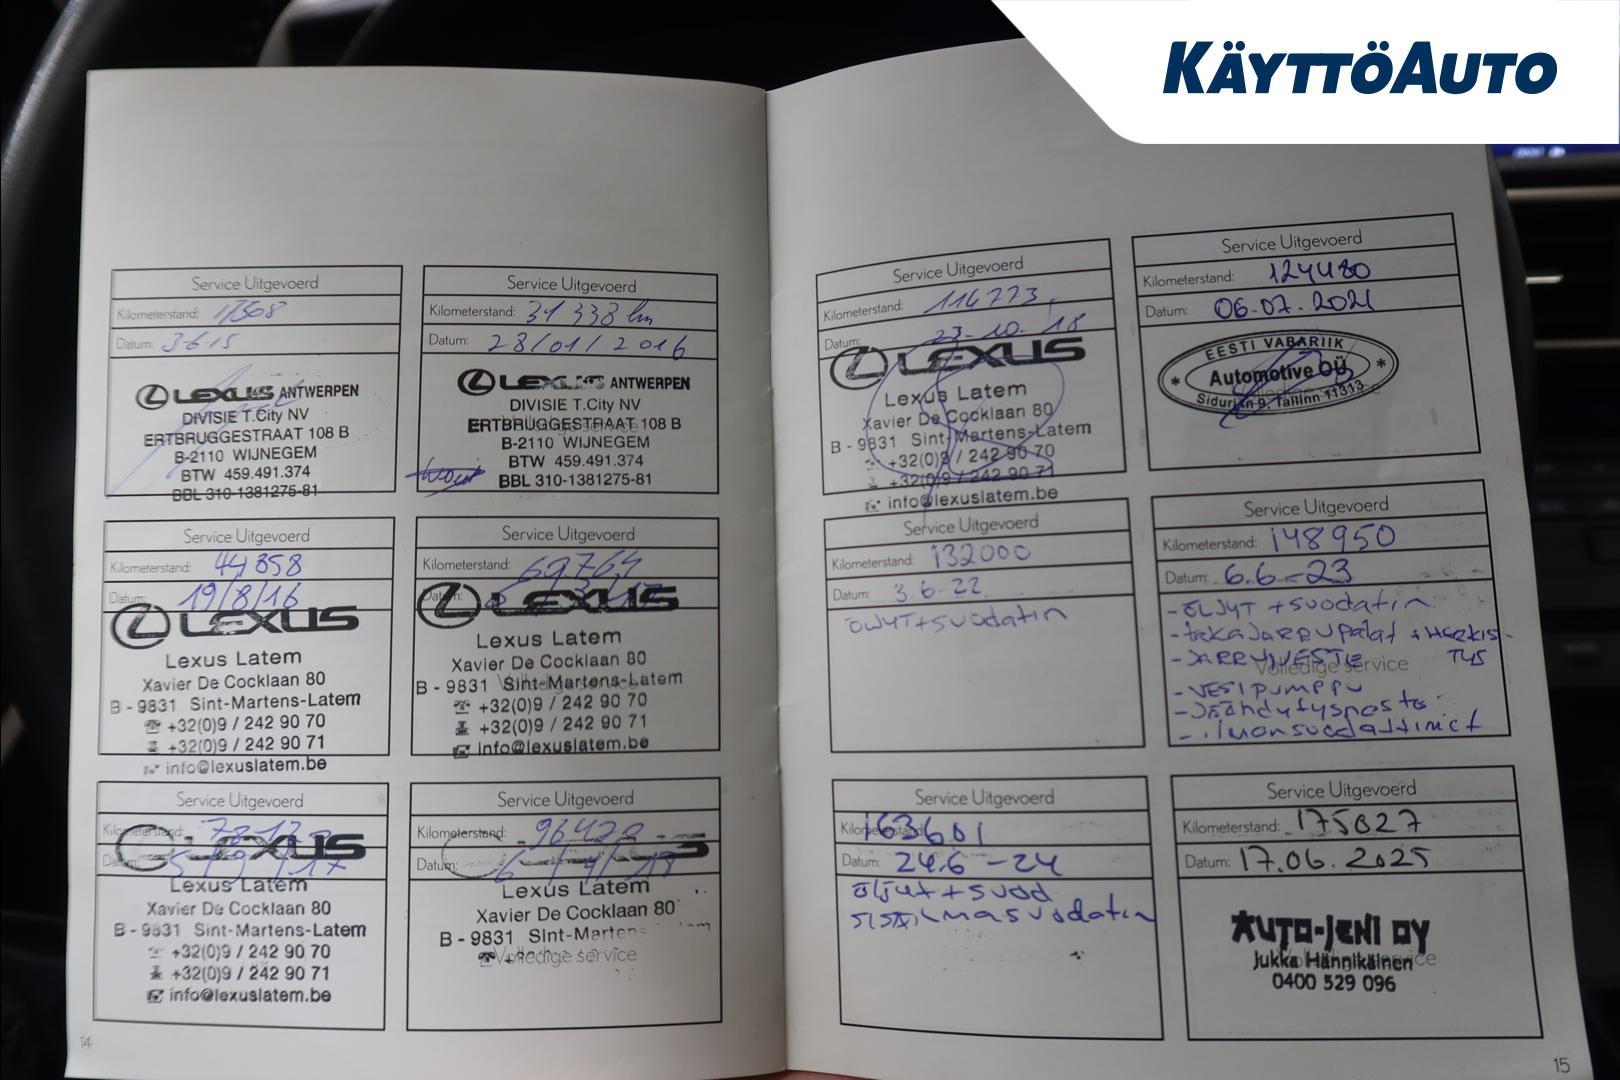 KÄYTTÖAUTO
Service Uitgevoerd
Kilometerstand: 17508
Datum: 3-6-15
LEXUS ANTWERPEN
DIVISIE T.City NV
ERTBRUGGESTRAAT 108 B
B-2110 WIJNEGEM
BTW 459.491.374
BBL 310-1381275-81
Service Uitgevoerd
Kilometerstand: 31 338 km
Datum: 28/01/2016
LEXUS ANTWERPEN
DIVISIE T.City NV
ERTBRUGGESTRAAT 108 B
B-2110 WIJNEGEM
BTW 459.491.374
BBL 310-1381275-81
Service Uitgevoerd
Kilometerstand: 44358
Datum: 19/8/16
LEXUS
Lexus Latem
Xavier De Cocklaan 80
B - 9831 Sint-Martens-Latem
+32(0)9 / 242 90 70
+32(0)9 / 242 90 71
info@lexuslatem.be
Service Uitgevoerd
Kilometerstand: 69764
Datum:
LEXUS
Lexus Latem
Xavier De Cocklaan 80
B - 9831 Sint-Martens-Latem
+32(0)9 / 242 90 70
+32(0)9 / 242 90 71
info@lexuslatem.be
Service Uitgevoerd
Kilometerstand:
Datum:
LEXUS
Lexus Latem
Xavier De Cocklaan 80
B - 9831 Sint-Martens-Latem
+32(0)9 / 242 90 70
+32(0)9 / 242 90 71
info@lexuslatem.be
Service Uitgevoerd
Kilometerstand: 96420
Datum:
Lexus Latem
Xavier De Cocklaan 80
B - 9831 Sint-Martens
Volledige service
14
Service Uitgevoerd
Kilometerstand: 114773
Datum: 23-10-18
LEXUS
Lexus Latem
Xavier De Cocklaan 80
B - 9831 Sint-Martens-Latem
+32(0)9 / 242 90 70
+32(0)9 / 242 90 71
info@lexuslatem.be
Service Uitgevoerd
Kilometerstand: 124480
Datum: 06.07.2021
EESTI VABARIIK
Automotive OÜ
Sidurian 9, Tallinn 11313
Service Uitgevoerd
Kilometerstand: 132000
Datum: 3.6-22
ÖLJYT+SUODATIN
Service Uitgevoerd
Kilometerstand: 148950
Datum: 6.6-23
- ÖLJYT + SUODATIN
- TAKAJARRUPALAT + HERKIS-
TYS
- JARRUNESTE
Volledige service
- VESIPUMPPU
- Jäähdytysneste
- ilmansuodattimet
Service Uitgevoerd
Kilometerstand: 163601
Datum: 24.6-24
öljyt + suod
SISÄILMASUODATIN
Service Uitgevoerd
Kilometerstand: 175827
Datum: 17.06.2025
AUTO-JENI OY
Jukka Hännikäinen
0400 529 096
15